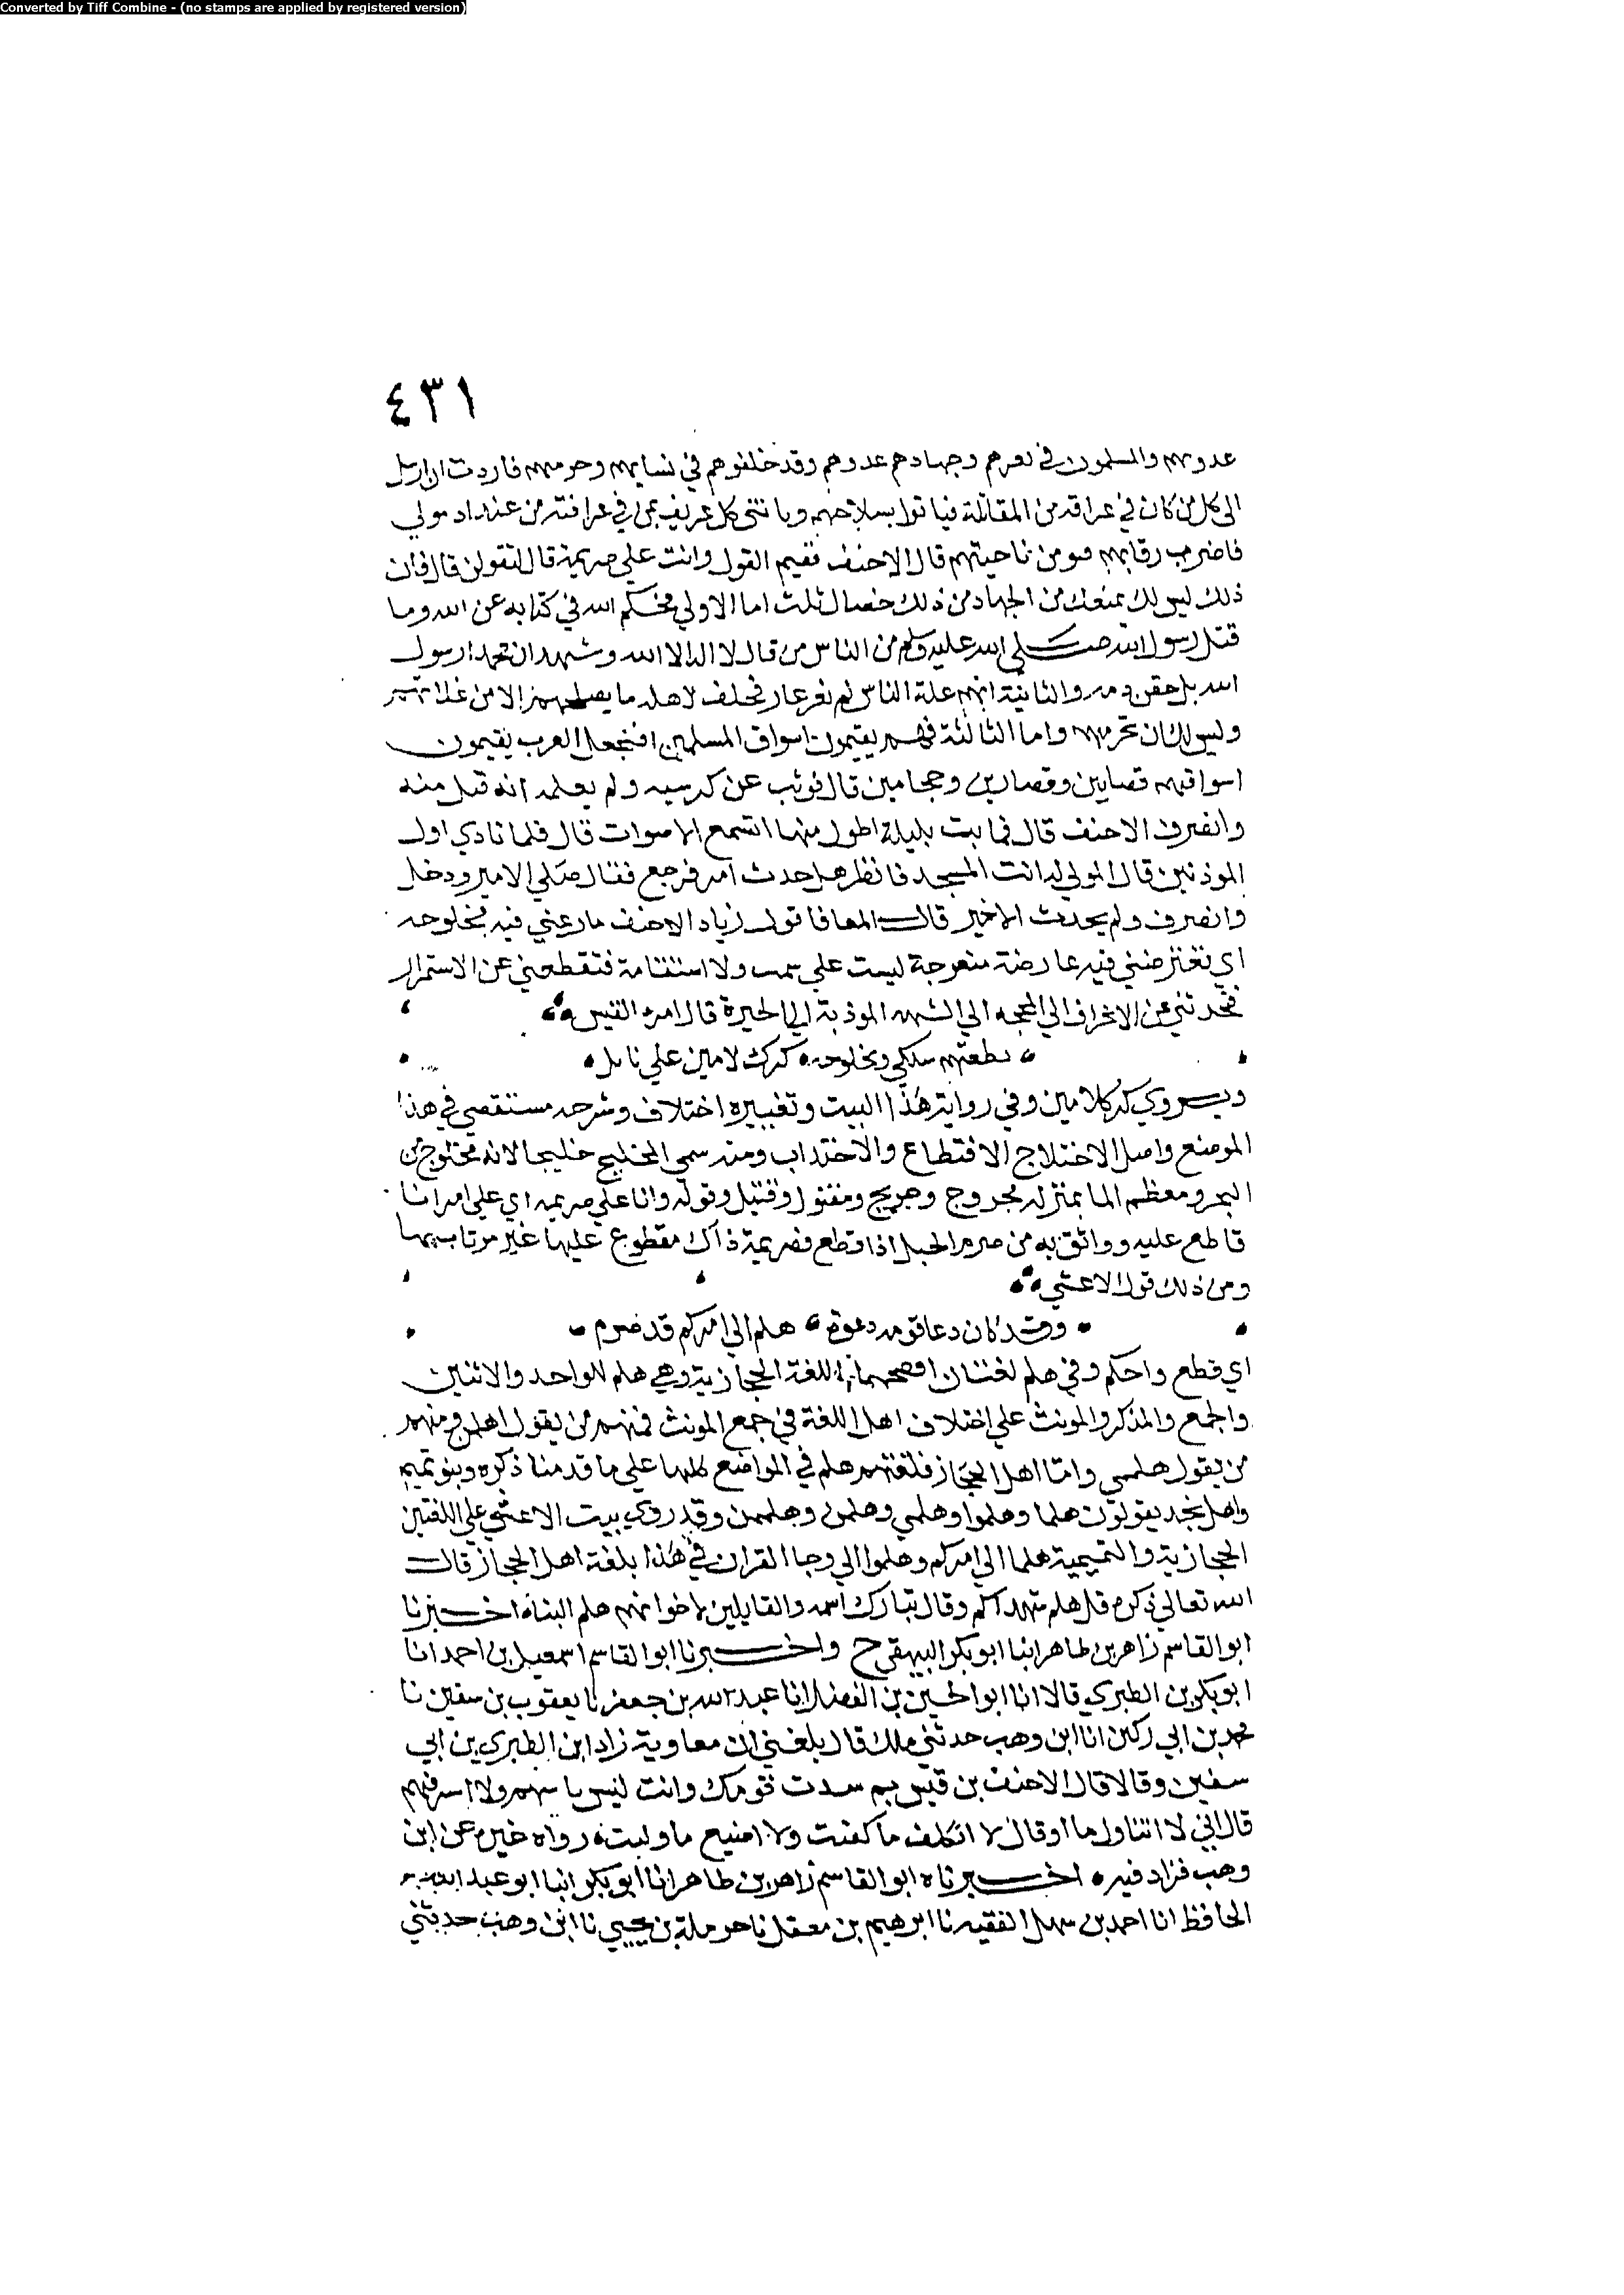 Converted by Tiff Combine - (no stamps are applied by registered version)
٤٣١
عدوهم والمسلمون في نحرهم وجهادهم عدوهم وقد خلفوهم في نسايهم وحرمهم فاردت ان ارسل
الى كل من كان في عرافة من المقاتلة فياتوا بسلاحهم وياتني كل عريف بمن في عرافته من عبد او مولي
فاضرب رقابهم فنومن ناحيتهم قال الاحنف ففيم القول وانت علي صريمة قال لتقولن قال فان
ذلك ليس لك يمنعك من الجهاد من ذلك خصال ثلث اما الاولي فحكم الله في كتابه عن الله وما
قتل رسول الله صلى الله عليه وسلم من الناس من قال لا اله الا الله وشهد ان محمدا رسول
الله بل حقن دمه والثانية انهم غلة الناس لم يغز غاز فخلف لاهله ما يصلحهم الا من غلاتهم
وليس لك ان تحرمهم واما الثالثة فهم يقيمون اسواق المسلمين افنجعل العرب يقيمون
اسواقهم قصابين وقصارين وحجامين قال فوثب عن كرسيه ولم يعلمه انه قبل منه
وانصرف الاحنف قال فما بت بليلة اطول منها اتسمع الاصوات قال فلما نادي اول
الموذنين قال لمولي له ائت المسجد فانظر هل حدث امر فرجع فقال صلي الامير ودخل
وانصرف ولم يحدث الا خير قال المعافا قول زياد الاحنف ما دعني فيه مخلوجه
اي تعترضني فيه عارضة منعرجة ليست علي سمت ولا استقامة فتقطعني عن الاستمرار
الي الحيرة قال امرء القيس
نطعنهم سلكي ومخلوجه كرك لامين علي نابل
ويروي كر كلامين وفي رواية هذا البيت وتفسيره اختلاف وشرحه مستقصي في هذا
الموضع واصل الاختلاج الاقتطاع والاجتذاب ومنه سمي الخليج خليجا لانه مختلوج من
البحر ومعظم الما بمنزله مجروح وجريح ومقتول وقتيل وقوله وانا علي صريمه اي علي امر انا
قاطع عليه وواثق به من صرم الحبل اذا قطع فصريمة ذاك مقطوع عليها غير مرتاب بها
ومن ذلك قول الاعشي
وقد كان دعا قومه دعوة هلم الي امركم قد صرم
اي قطع واحكم وفي هلم لغتان افصحهما اللغة الحجازية وهي هلم للواحد والاثنين
والجمع والمذكر والمونث علي اختلاف اهل اللغة في جمع المونث فمنهم من يقول هلمن ومنهم
من يقول هلمي واما اهل الحجاز فلغتهم هلم في المواضع كلها علي ما قدمنا ذكره وبنو تميم
واهل نجد يقولون هلما وهلموا وهلمي وهلمن وهلممن وقد روي بيت الاعشي علي اللغتين
الحجازية والتميمية هلما الي امركم وهلموا الي وجا القران في هذا بلغة اهل الحجاز قال
الله تعالي ذكره قل هلم شهداكم وقال تبارك اسمه والقايلين لاخوانهم هلم الينا اخبرنا
ابو القاسم زاهر بن طاهر انبا ابو بكر البيهقي ح واخبرنا ابو القاسم اسمعيل بن احمد انا
ابو بكر بن الطبري قالا انا ابو الحسين بن الفضل انا عبد الله بن جعفر نا يعقوب بن سفين نا
محمد بن ابي زكين انا ابن وهب حدثني ملك قال بلغني ان معاوية زاد ابن الطبري بن ابي
سفين وقالا قال الاحنف بن قيس بم سدت قومك وانت ليس باسنهم ولا اشرفهم
قال اني لا اتناول ما او قال لا اتكلف ما كفيت ولا اضيع ما وليت رواه غيره عن ابن
وهب فزاد فيه اخبرناه ابو القاسم زاهر بن طاهر انا ابو بكر انبا ابو عبد الله
الحافظ انا احمد بن سهل الفقيه نا ابرهيم بن معقل نا حرملة بن يحيي نا ابن وهب حدثني